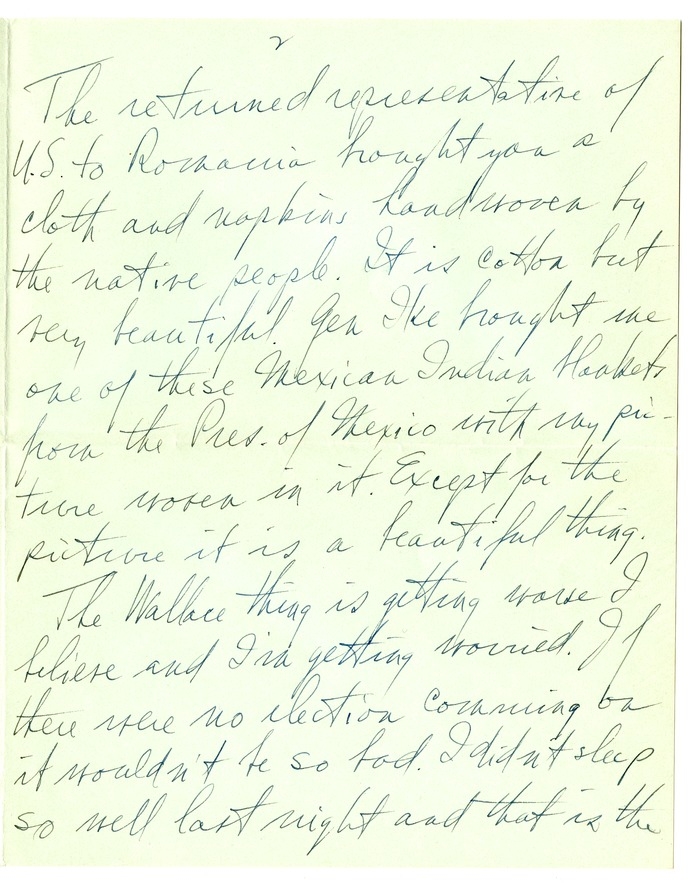 2
The returned representative of
U.S. to Romania brought you a
cloth and napkins handwoven by
the native people. It is cotton but
very beautiful. Gen Ike brought me
one of these Mexican Indian blankets
from the Pres. of Mexico with my pic-
ture woven in it. Except for the
picture it is a beautiful thing.
The Wallace thing is getting worse I
believe and I'm getting worried. If
there were no election comming on
it wouldn't be so bad. I didn't sleep
so well last night and that is the